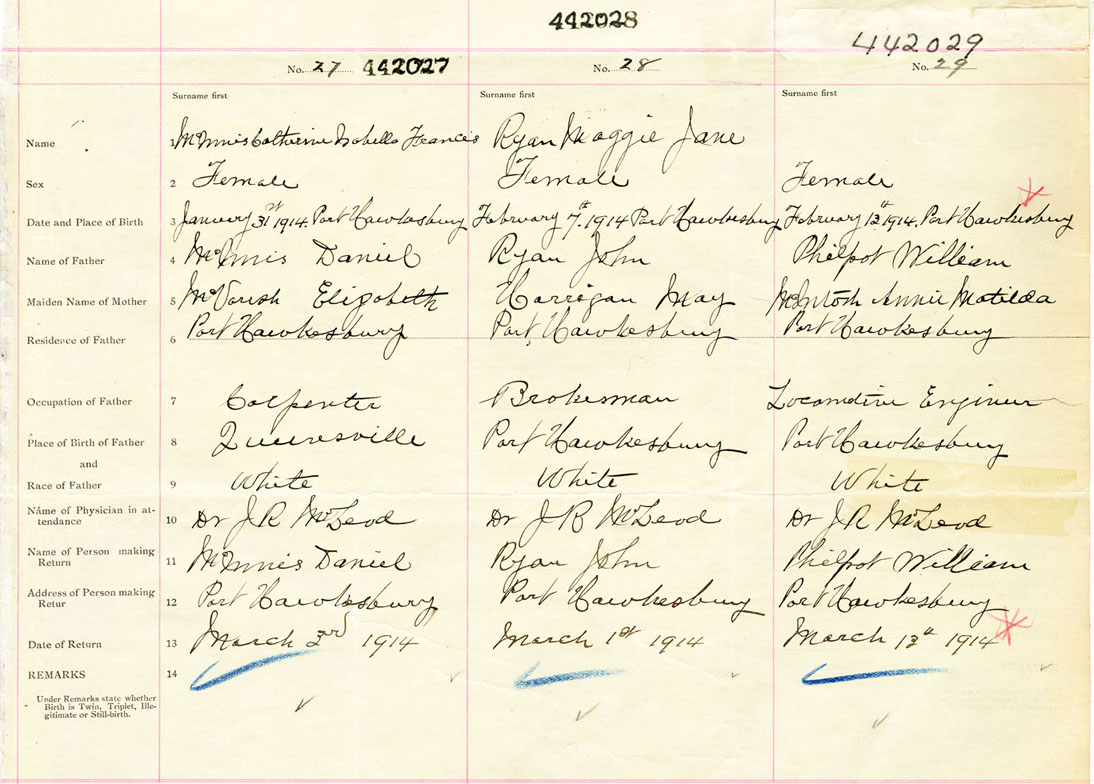 442028
442029
No. 27 442027
No. 28
No. 29
Surname first
Surname first
Surname first
Name 1 McInnis Catherine Isabella Francis Ryan Maggie Jane
Sex 2 Female Female Female
Date and Place of Birth 3 January 31st 1914. Port Hawkesbury February 7th. 1914 Port Hawkesbury February 12th 1914. Port Hawkesbury
Name of Father 4 McInnis Daniel Ryan John Philpot William
Maiden Name of Mother 5 McVarish Elizabeth Harrigan May McIntosh Annie Matilda
Residence of Father 6 Port Hawkesbury Port Hawkesbury Port Hawkesbury
Occupation of Father 7 Carpenter Brakesman Locomotive Engineer
Place of Birth of Father 8 Queensville Port Hawkesbury Port Hawkesbury
and
Race of Father 9 White White White
Name of Physician in at-
tendance 10 Dr J R McLeod Dr J R McLeod Dr J R McLeod
Name of Person making
Return 11 McInnis Daniel Ryan John Philpot William
Address of Person making
Retur 12 Port Hawkesbury Port Hawkesbury Port Hawkesbury
Date of Return 13 March 3rd 1914 March 1st 1914 March 13th 1914
REMARKS 14
Under Remarks state whether
Birth is Twin, Triplet, Ille-
gitimate or Still-birth.